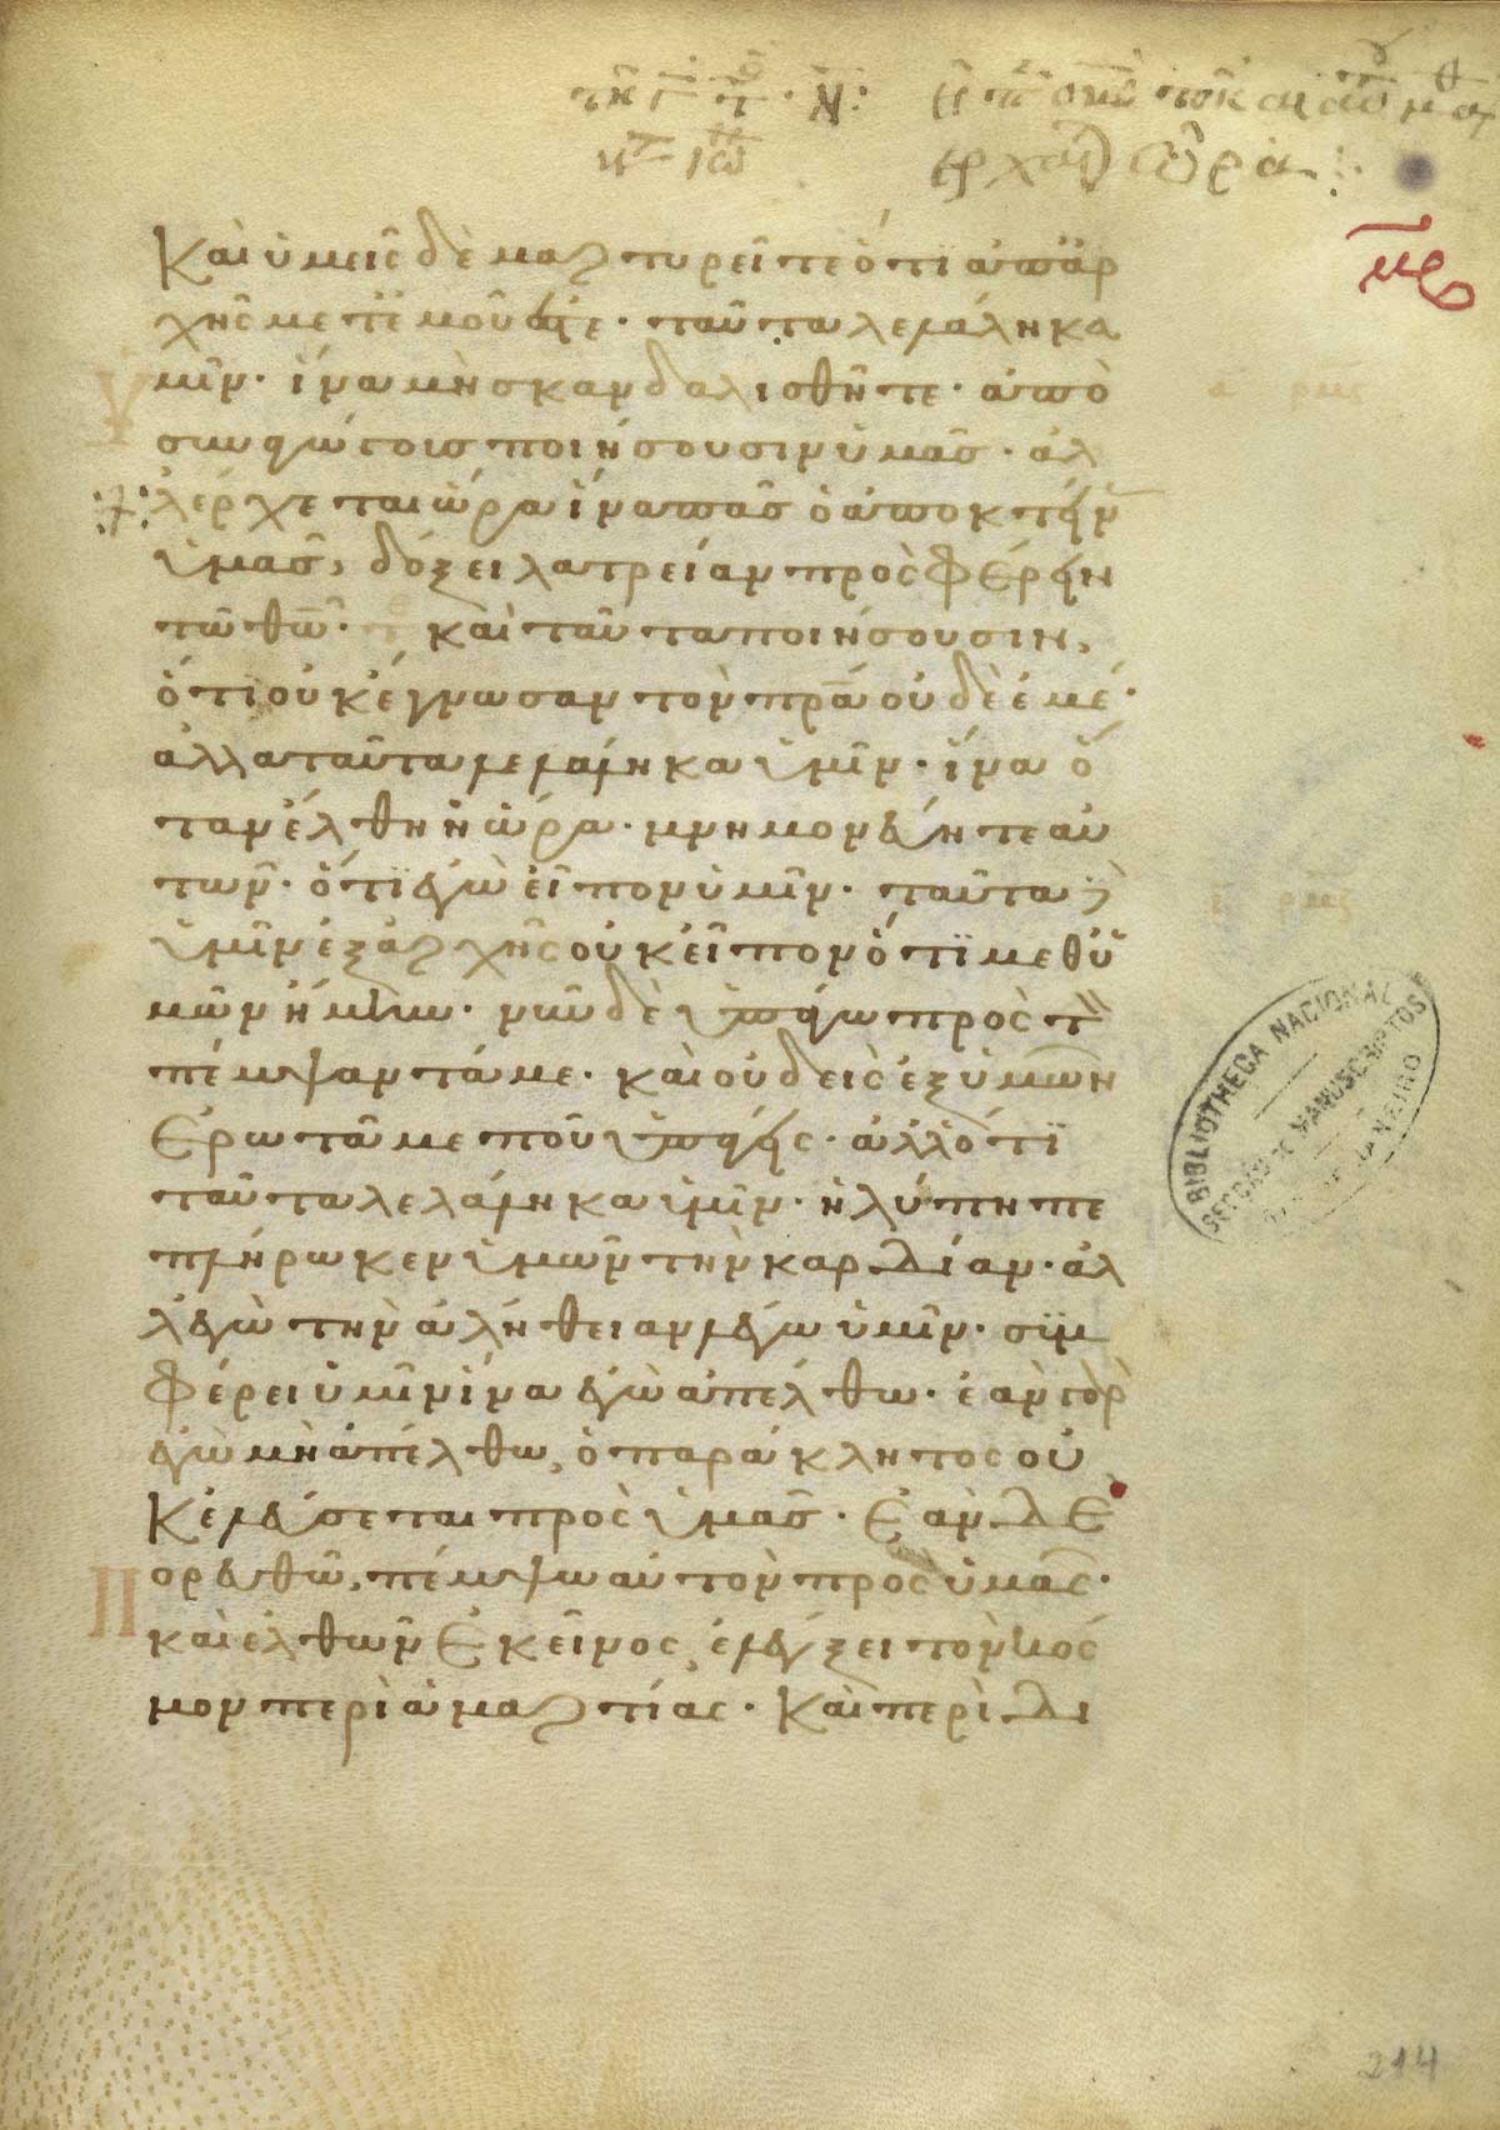 Καὶ ὑμεῖς δὲ μαρτυρεῖτε ὅτι ἀπ' ἀρ
χῆς μετ' ἐμοῦ ἐστε· ταῦτα λελάληκα
μῖν· ἵνα μὴ σκανδαλισθῆτε· ἀπο
συναγώγοις ποιήσουσιν ὑμᾶς· ἀλ
λ' ἔρχεται ὥρα ἵνα πᾶς ὁ ἀποκτείν
ὑμᾶς, δόξει λατρείαν προσφέρειν
τῶ θῶ· καὶ ταῦτα ποιήσουσιν,
ὅτι οὐκ ἔγνωσαν τὸν πρα οὐδὲ ἐμέ·
ἀλλα ταῦτα λελάληκα ὑμῖν· ἵνα ὅ
ταν ἔλθη ἡ ὥρα· μνημονεύητε αὐ
τῶν· ὅτι ἐγὼ εἶπον ὑμῖν· ταῦτα δὲ
ὑμῖν ἐξ ἀρχῆς οὐκ εἶπον ὅτι μεθ' ὑ
μῶν ἤμην· νῦν δὲ ὑπάγω πρὸς τὸν
πέμψαντά με· καὶ οὐδεὶς ἐξ ὑμῶν
ἐρωτᾶ με ποῦ ὑπάγεις· ἀλλ' ὅτι
ταῦτα λελάληκα ὑμῖν· ἡ λύπη πε
πλήρωκεν ὑμῶν τὴν καρδίαν· ἀλ
λ' ἐγὼ τὴν ἀλήθειαν λέγω ὑμῖν· συμ
φέρει ὑμῖν ἵνα ἐγὼ ἀπέλθω· ἐὰν γὰρ
ἐγὼ μὴ ἀπέλθω, ὁ παράκλητος οὐ
κ ἐλεύσεται πρὸς ὑμᾶς· ἐὰν δὲ
πορευθῶ, πέμψω αὐτὸν πρὸς ὑμᾶς·
καὶ ἐλθὼν ἐκεῖνος, ἐλέγξει τὸν κόσ
μον περὶ ἁμαρτίας· Καὶ περὶ δι
BIBLIOTHECA NACIONAL
SECÇÃO DE MANUSCRIPTOS
RIO DE JANEIRO
214